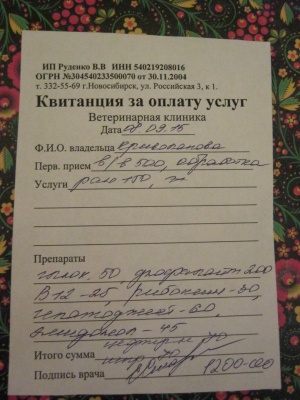 ИП Руденко В.В ИНН 540219208016
ОГРН №304540233500070 от 30.11.2004
т. 332-55-69 г.Новосибирск, ул. Российская 3, к 1.
Квитанция за оплату услуг
Ветеринарная клиника
Дата 08.09.15
Ф.И.О. владельца
Перв. прием в/в 500, обработка
Услуги ран 150,
Препараты
глюк. 50 200
В12 - 25, рибоксин - 30,
гепатоджект - 60,
- 45
70
Итого сумма 70
Подпись врача 1200-00